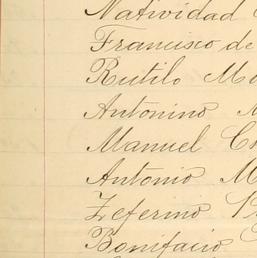 Natividad
Francisco de
Rutilo
Antonino
Manuel
Antonio
Zeferino
Bonifacio